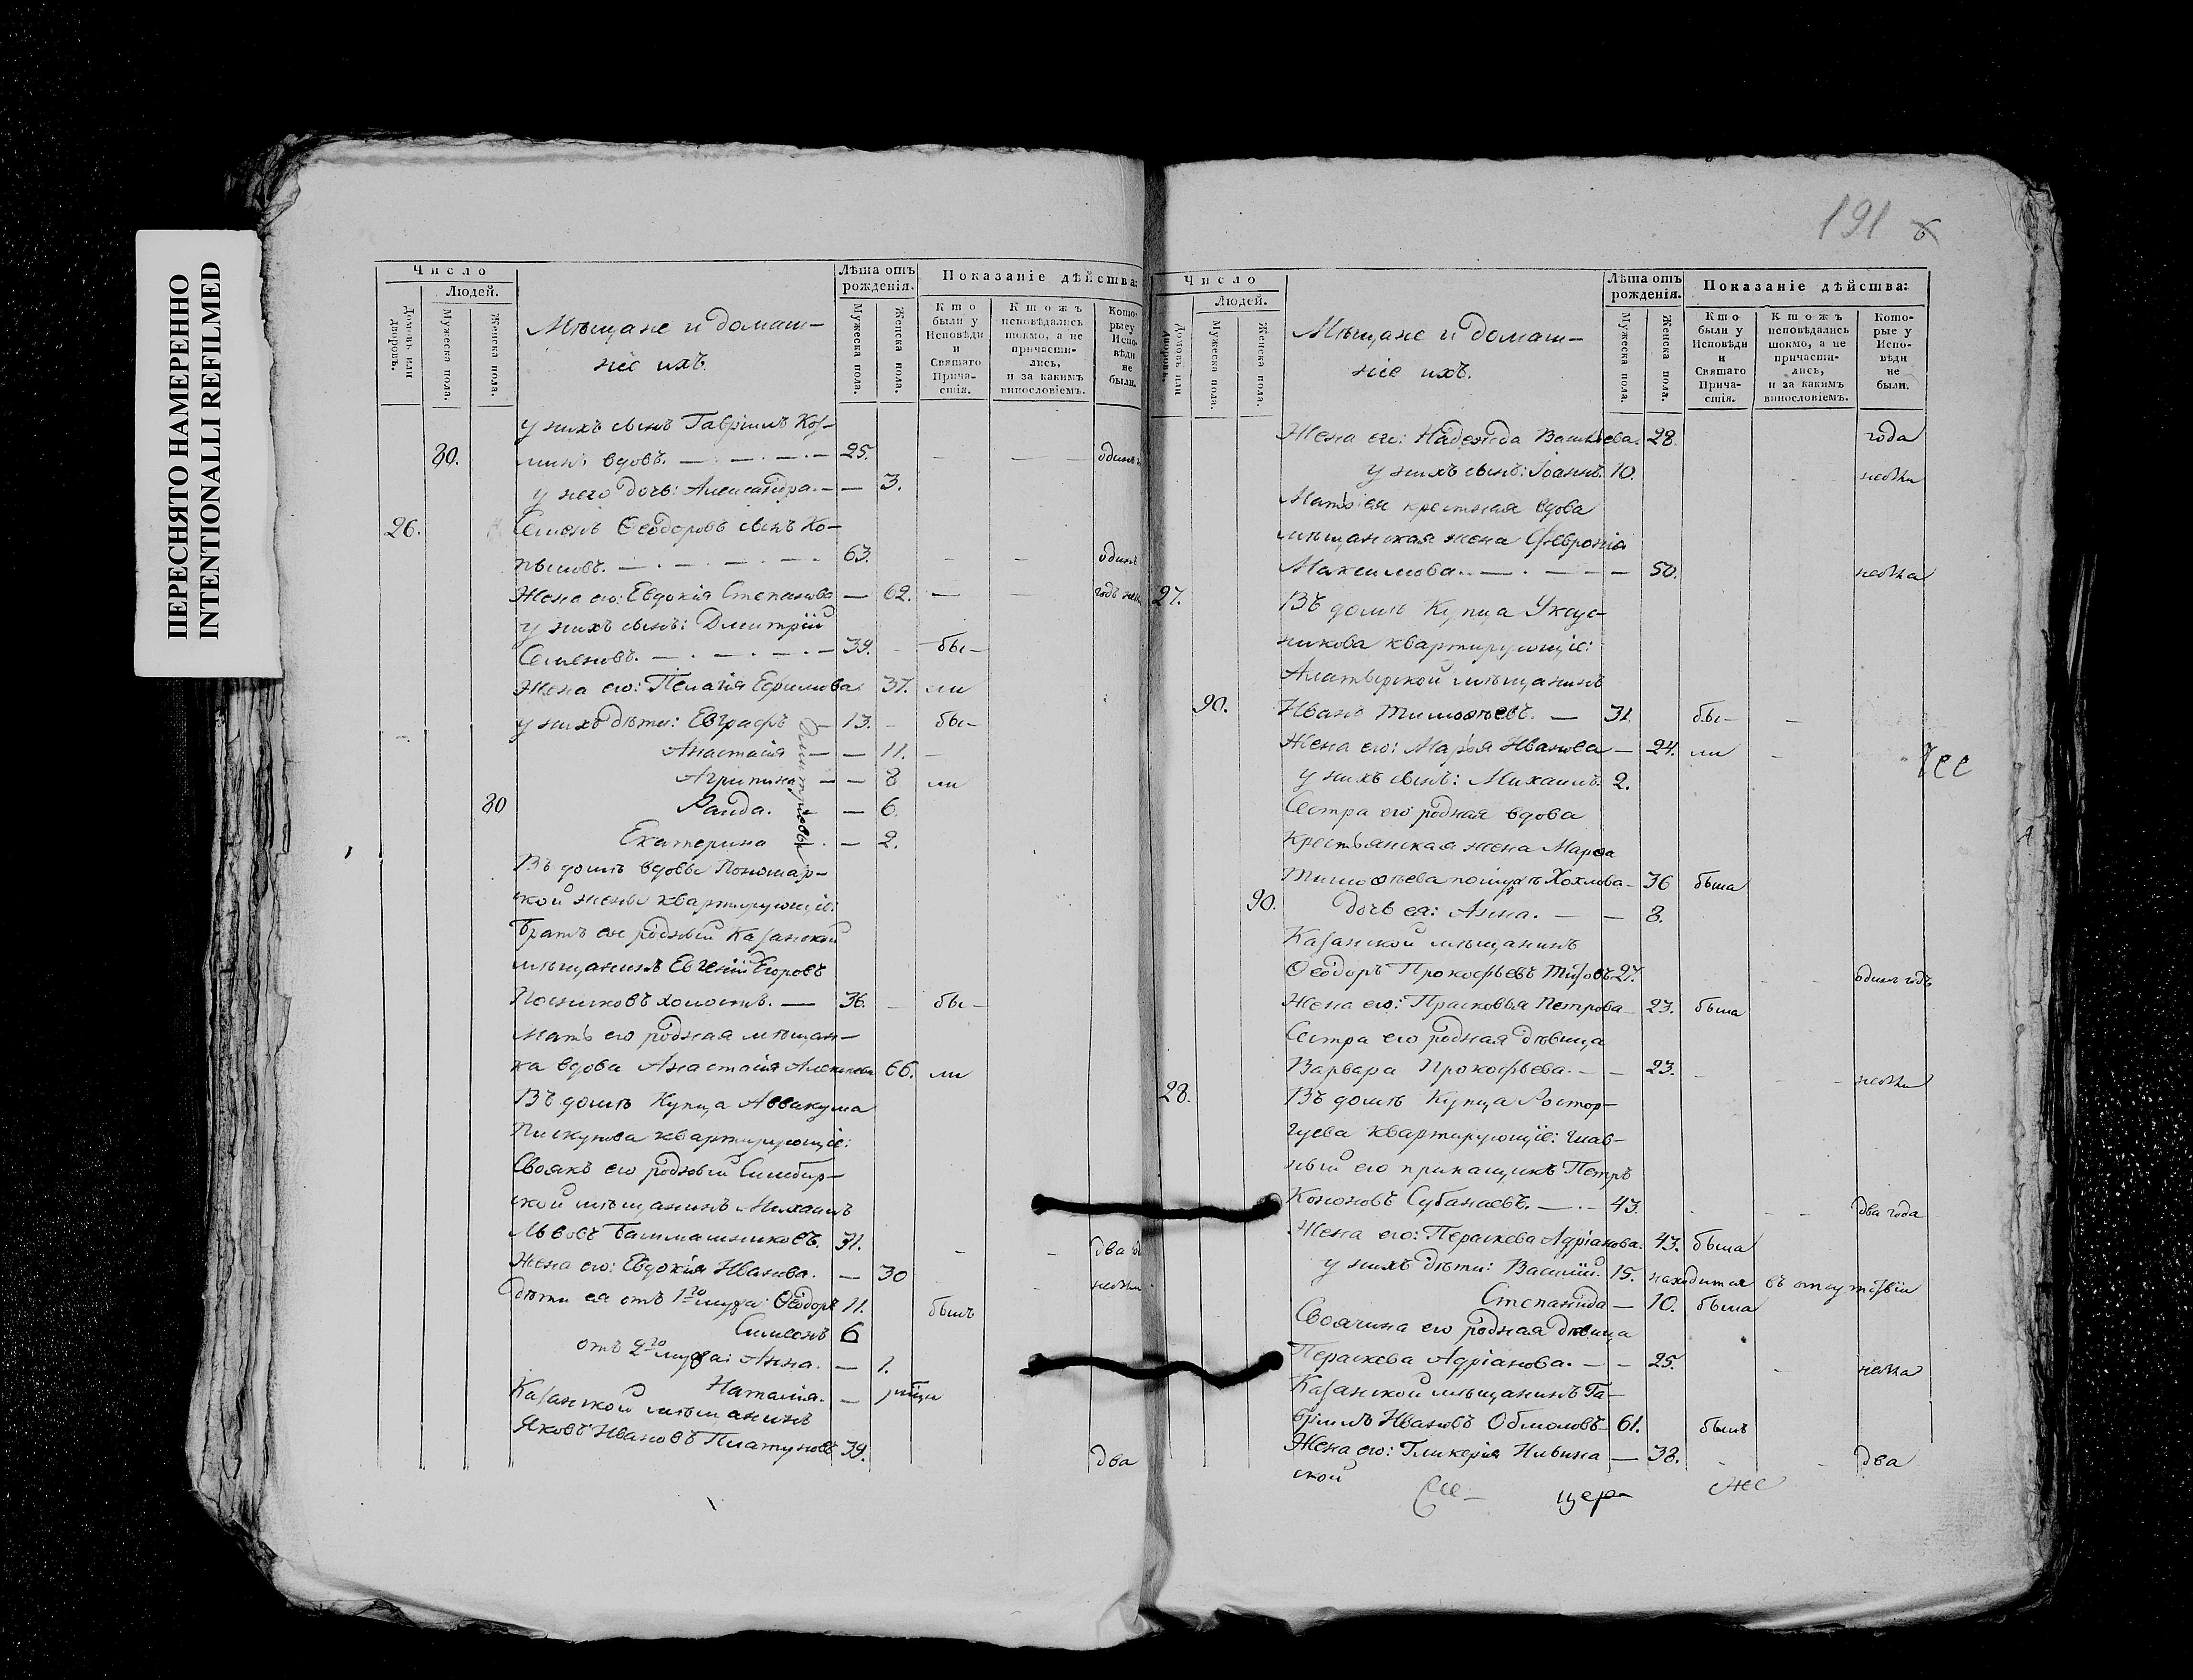 ПЕРЕСНЯТО НАМЕРЕННО
INTENTIONALLI REFILMED
Число
Людей.
Домовъ или дворовъ.
Мужеска пола.
Женска пола.
Мѣщане и домаш-
ніе ихъ.
Лѣта отъ рожденія.
Мужеска пола.
Женска пола.
Показаніе дѣйства:
Кто были у Исповѣди и Святаго Причастія.
Ктожъ исповѣдались токмо, а не причастились, и за какимъ винословіемъ.
Которые у Исповѣди не были.
у нихъ сынъ Гавріилъ Коз-
80. минъ вдовъ. — 25. — — одинъ
у него дочь: Александра. — — 3.
26. Семенъ Ѳеодоровъ сынъ Хо-
— 63. — — одинъ
Жена его: Евдокія Степанова — 62. — — годъ
у нихъ сынъ: Дмитрій
Семеновъ. — 39. — бы-
Жена его: Пелагія Ефимова 37. ли
у нихъ дѣти: Евграфъ — 13. — бы-
Дмитріевы
Анастасія — — 11. —
Агрипина — — 8 ли
80 Раида. — 6.
Екатерина — 2.
Въ домѣ вдовы Пономар-
ской жены квартирующіе:
Братъ ея родный Казанской
мѣщанинъ Евгеній Егоровъ
холостъ. — 36. — бы-
Мать его родная мѣщан-
ка вдова Анастасія 66. ли
Въ домѣ Купца Аввакума
Пискунова квартирующіе:
Своякъ его родный Симбир-
ской мѣщанинъ Михаилъ
Львовъ Башмашниковъ. 31. — — два
Жена его: Евдокія Иванова. — 30
дѣти ея отъ 1го мужа: Ѳеодоръ 11. былъ
Симеонъ 6
отъ 2го мужа: Анна. — 1.
Наталія. —
Казанской мѣщанинъ
Яковъ Ивановъ Платуновъ 39. два
191
Число
Людей.
Домовъ или дворовъ.
Мужеска пола.
Женска пола.
Мѣщане и домаш-
ніе ихъ.
Лѣта отъ рожденія.
Мужеска пола.
Женска пола.
Показаніе дѣйства:
Кто были у Исповѣди и Святаго Причастія.
Ктожъ исповѣдались токмо, а не причастились, и за какимъ винословіемъ.
Которые у Исповѣди не были.
Жена его: Надежда Васильева. 28. года
у нихъ сынъ: Іоаннъ. 10.
Мать ея крестная вдова
мѣщанская жена Февронія
Максимова. — — 50.
27. Въ домѣ Купца Уксус-
никова квартирующіе:
Алатырской мѣщанинъ
90. Иванъ Тимоѳѣевъ. — 31. бы- —
Жена его: Марья Иванова — 24. ли
у нихъ сынъ: Михаилъ. 2.
Сестра его родная вдова
крестьянская жена Марѳа
Тимоѳѣева Хохлова — 36 была
90. дочь ея: Анна. — — 8.
Казанской мѣщанинъ
Ѳеодоръ Прокофьевъ 27. одинъ годъ
Жена его: Прасковья Петрова — 23. была
Сестра его родная дѣвица
Варвара Прокофьева. — — 23.
28. Въ домѣ Купца Растор-
гуева квартирующіе: глав-
ный его прикащикъ Петръ
Кононовъ Субанаевъ. — 43. два года
Жена его: Параскева Адріанова. 43. была
у нихъ дѣти: Василій. 15. находится въ отсутствіи
Степанида — 10. была
Своячина его родная дѣвица
Параскева Адріанова. — — 25.
Казанской мѣщанинъ Га-
вріилъ Ивановъ 61. былъ
Жена его: Гликерія Ильина — 38. — — два
ской цер-